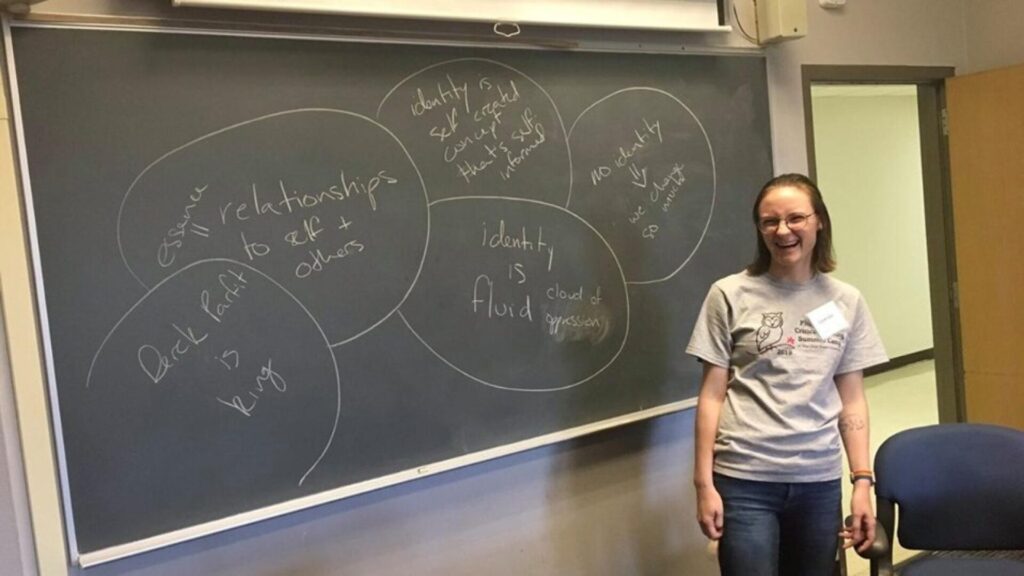 essence = relationships
to self +
others
identity is
self created
that's self-
informed
no identity
we change
identity
is
fluid
cloud of
oppression
Derek Parfit
is
king
Summer Camp
2019